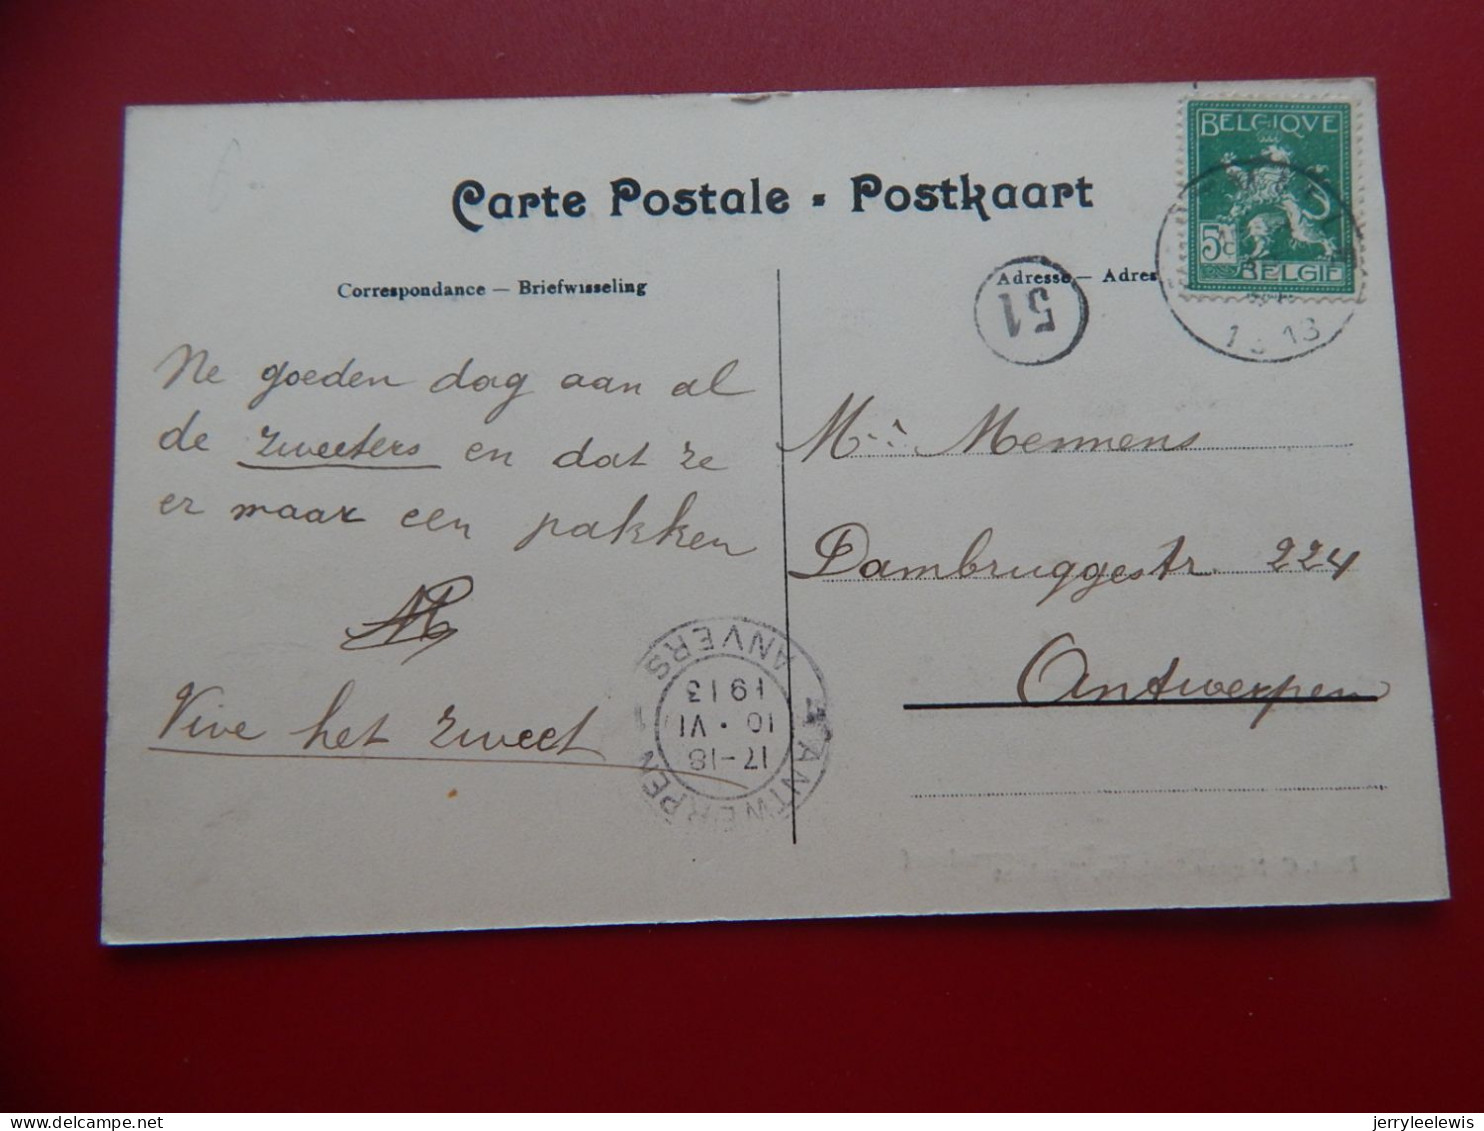 Carte Postale - Postkaart
Correspondance — Briefwisseling
Adresse — Adres
BELGIQVE
5c
BELGIË
1913
51
Ne goeden dag aan al
de zweeters en dat ze
er maar een pakken
Vive het zweet
Mr Mennens
Dambruggestr. 224
Antwerpen
ANTWERPEN 1
17-18
10 · VI
1913
ANVERS
delcampe.net
jerryleelewis